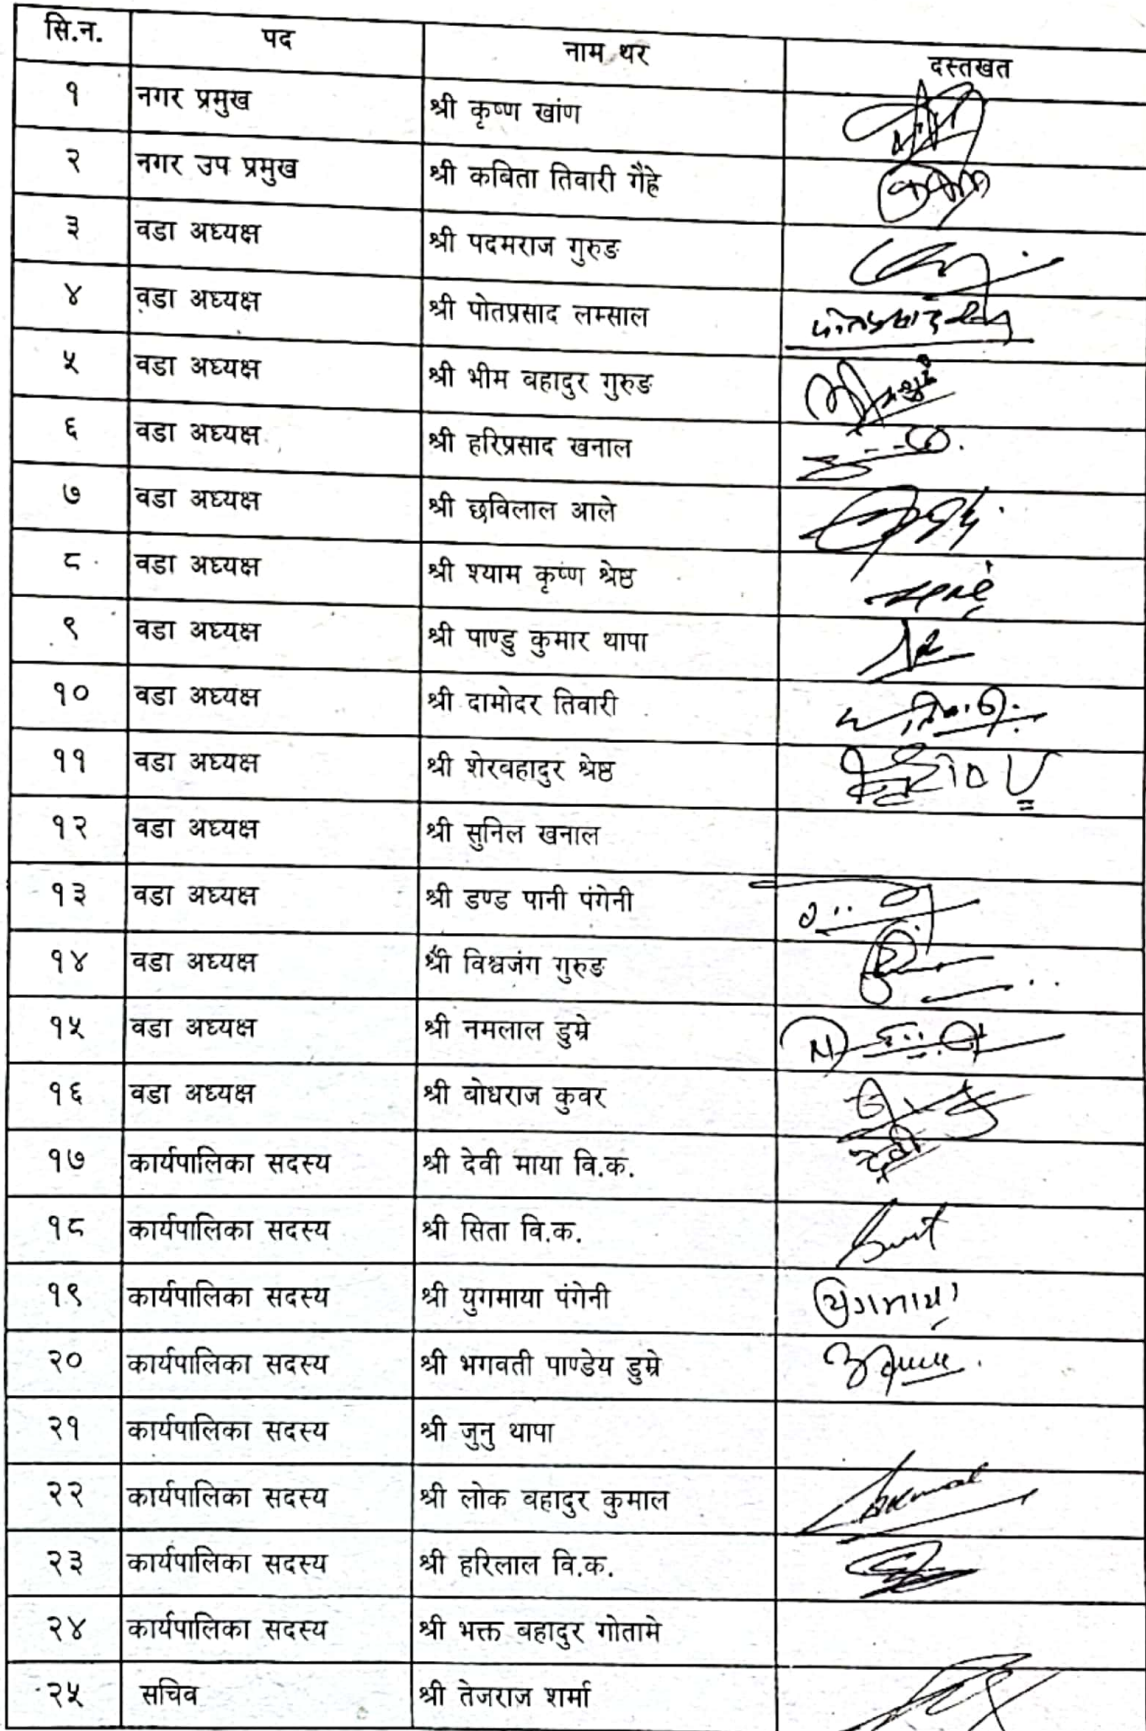 सि.न. पद नाम थर दस्तखत
१ नगर प्रमुख श्री कृष्ण खांण
२ नगर उप प्रमुख श्री कबिता तिवारी गैह्रे
३ वडा अध्यक्ष श्री पदमराज गुरुङ
४ वडा अध्यक्ष श्री पोतप्रसाद लम्साल पोतप्रसाद
५ वडा अध्यक्ष श्री भीम बहादुर गुरुङ
६ वडा अध्यक्ष श्री हरिप्रसाद खनाल
७ वडा अध्यक्ष श्री छविलाल आले
८ वडा अध्यक्ष श्री श्याम कृष्ण श्रेष्ठ
९ वडा अध्यक्ष श्री पाण्डु कुमार थापा
१० वडा अध्यक्ष श्री दामोदर तिवारी
११ वडा अध्यक्ष श्री शेरवहादुर श्रेष्ठ
१२ वडा अध्यक्ष श्री सुनिल खनाल
१३ वडा अध्यक्ष श्री डण्ड पानी पंगेनी
१४ वडा अध्यक्ष श्री विश्वजंग गुरुङ
१५ वडा अध्यक्ष श्री नमलाल डुम्रे
१६ वडा अध्यक्ष श्री बोधराज कुवर
१७ कार्यपालिका सदस्य श्री देवी माया वि.क. देवी
१८ कार्यपालिका सदस्य श्री सिता वि.क.
१९ कार्यपालिका सदस्य श्री युगमाया पंगेनी युगमाया
२० कार्यपालिका सदस्य श्री भगवती पाण्डेय डुम्रे
२१ कार्यपालिका सदस्य श्री जुनु थापा
२२ कार्यपालिका सदस्य श्री लोक वहादुर कुमाल
२३ कार्यपालिका सदस्य श्री हरिलाल वि.क.
२४ कार्यपालिका सदस्य श्री भक्त बहादुर गोतामे
२५ सचिव श्री तेजराज शर्मा